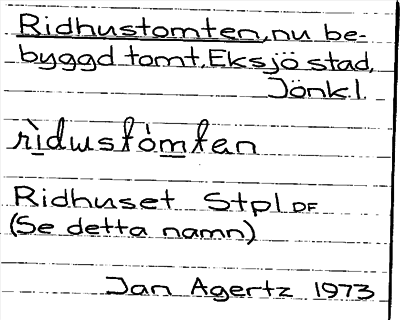 Ridhustomten, nu be-
byggd tomt, Eksjö stad,
Jönk. l.
rìdustòmtan
Ridhuset Stpl DF
(Se detta namn)
Jan Agertz 1973